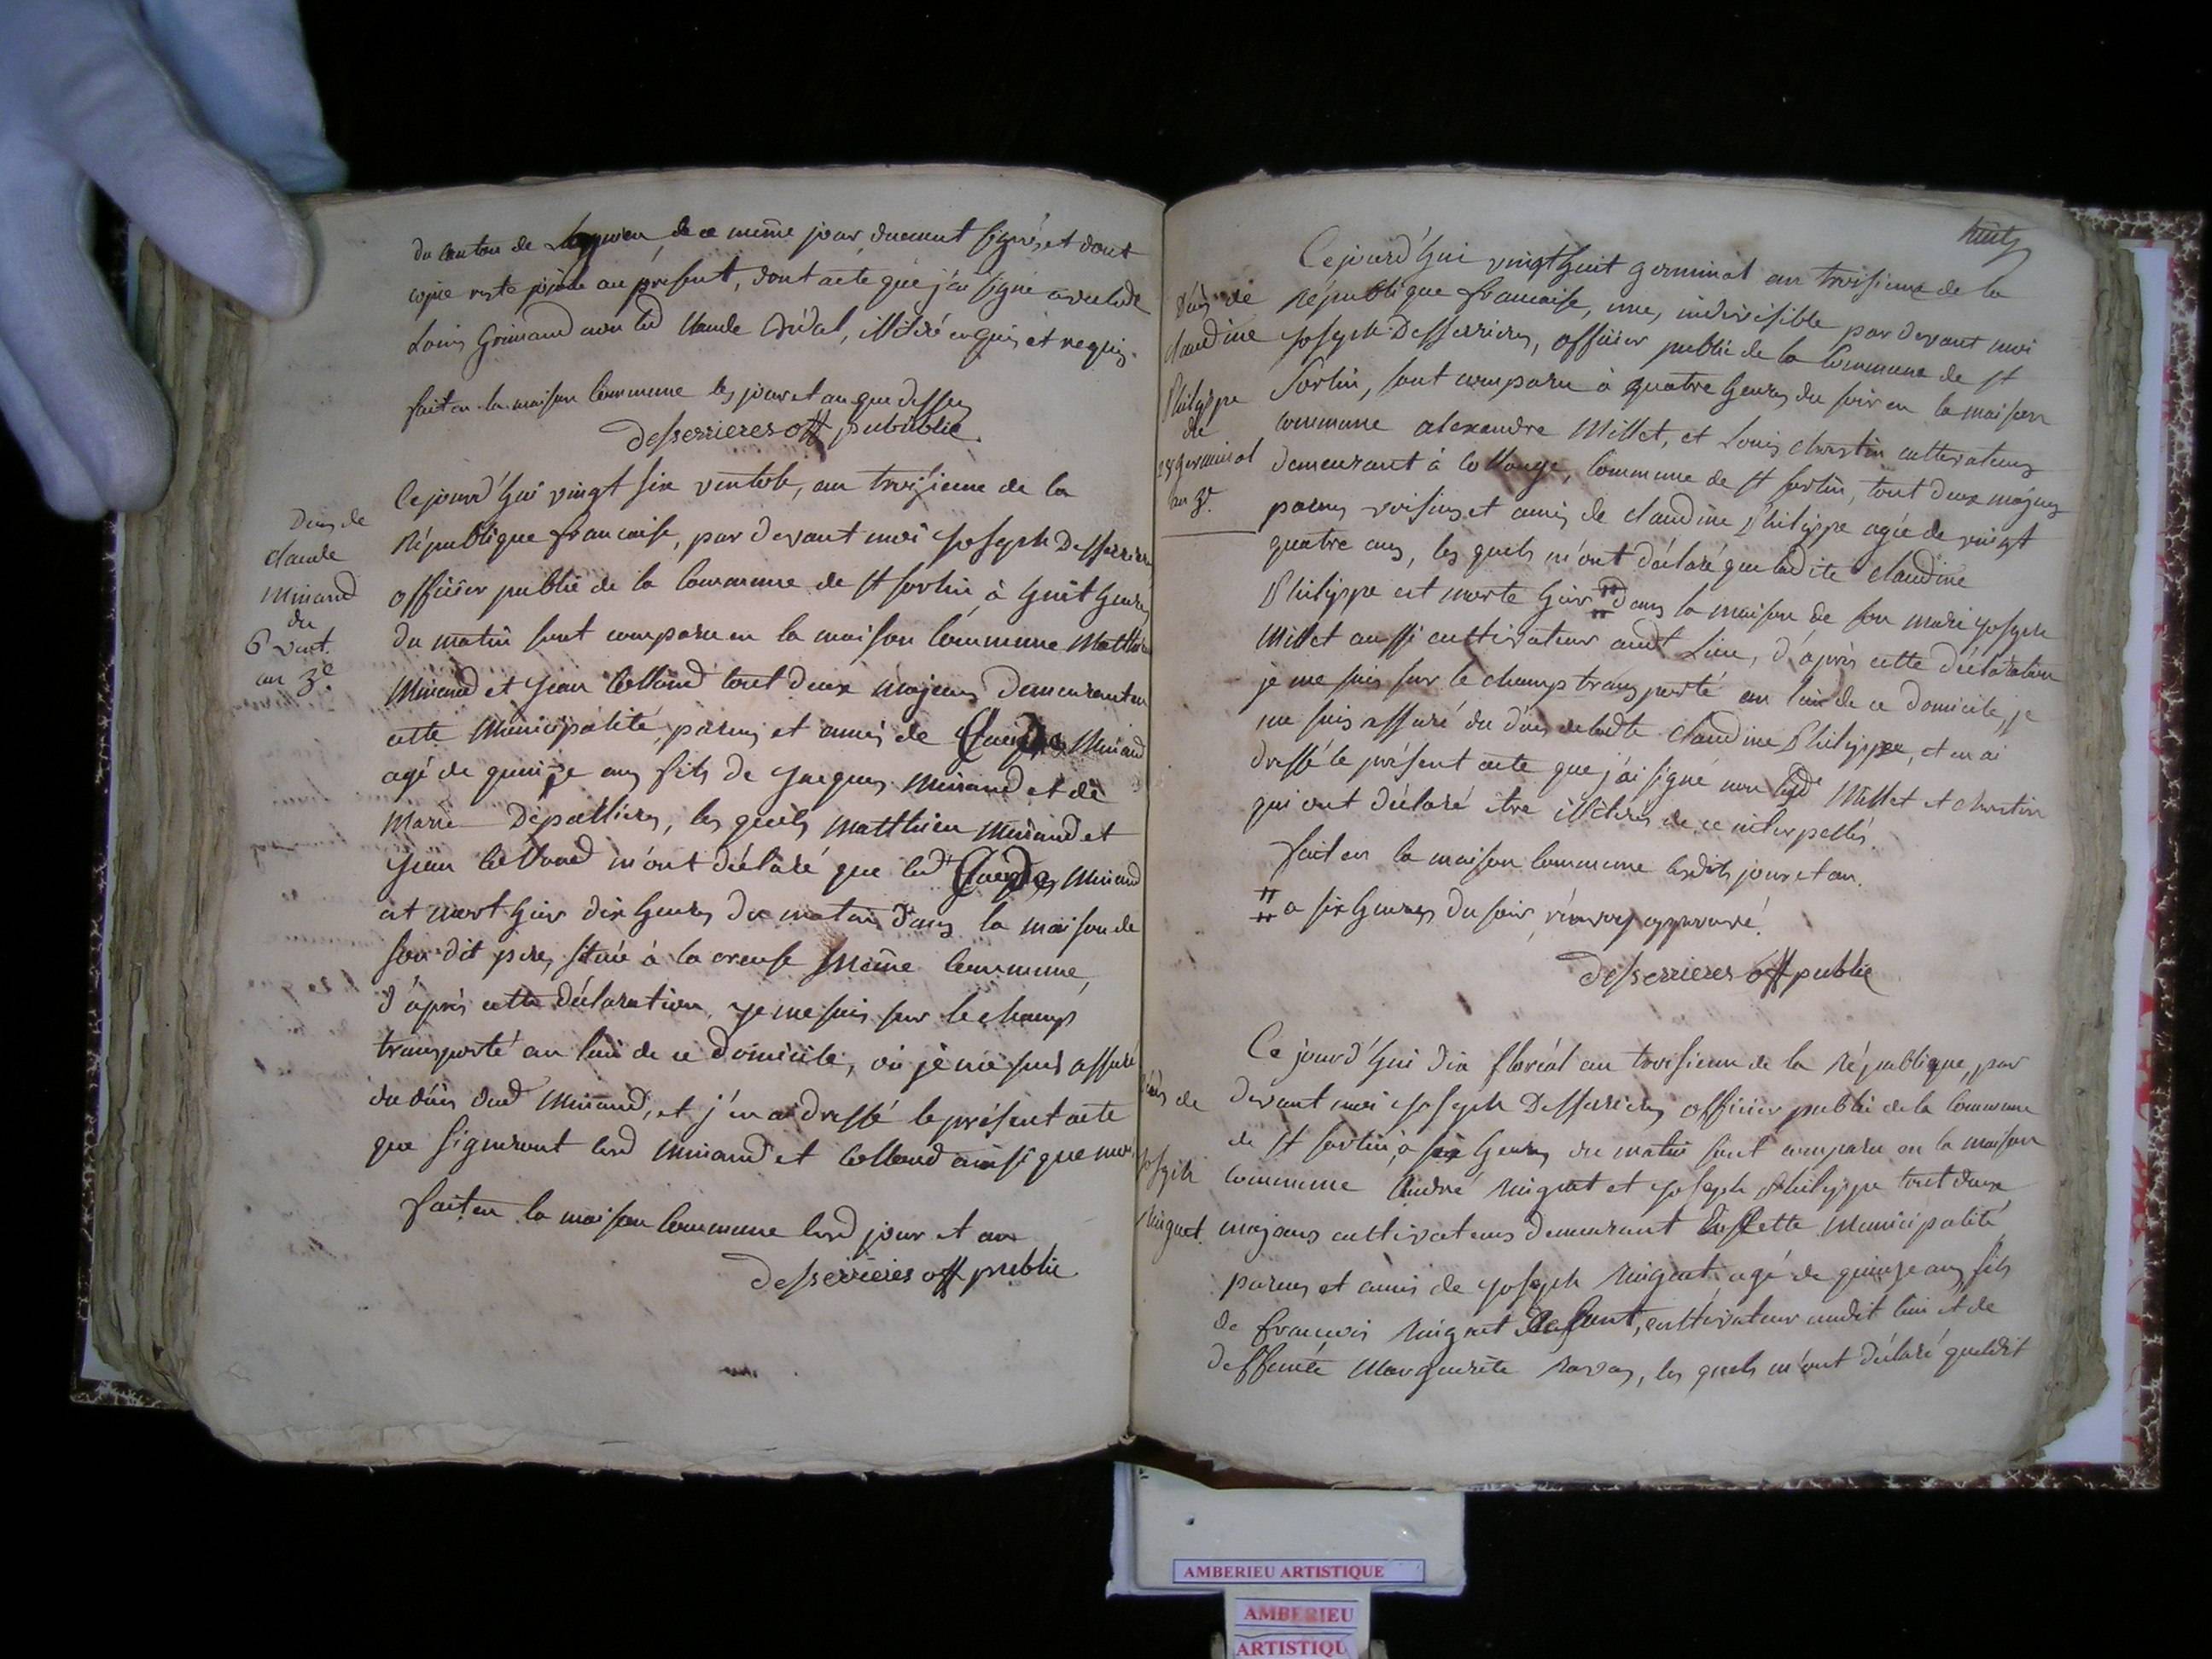 du canton de Lagnieu de ce même jour duement signés et dont
copie reste jointe au présent, dont acte que j'ai signé avec led
Louis Grimaud non led Claude Vidal, illitéré enquis et requis.
fait en la maison Commune les jour et an que dessus
desserrieres off pubublic
Deces de
claude
Minand
du
6 vent.
an 3e
Cejourd'hui vingt six ventose, an troizieme de la
République francaise, par devant moi Joseph Desserrieres
officier public de la Commune de st sorlin à huit heures
du matin sont comparu en la maison Commune Matthieu
Minand et Jean Colland tout deux majeurs demeurant en
cette Municipalité, parens et amis de Claude Minand
agé de quinze ans fils de Jacques Minand et de
Marie Depalliere, les quels Matthieu Minand et
Jean Colland m'ont déclaré que led Claude Minand
est mort hier dix heures du matin dans la maison de
son dit pere, située à la creuse même Commune,
d'après cette déclaration, je me suis sur le champ
transporté au lieu de ce domicile, où je me suis assuré
du décès dud Minand, et j'en ai dressé le présent acte
que signeront lesd Minand et Colland ainsi que moi.
fait en la maison Commune lesd jour et an
desserrieres off public
huit
décès de
claudine
Philippe
du
28 germinal
an 3e.
Cejourd'hui vingt huit germinal an troisieme de la
République francaise, une, indivisible par devant moi
Joseph Desserrieres, officier public de la Commune de st
Sorlin, sont comparu à quatre heures du soir en la maison
commune alexandre Millet, et Louis christin cultivateurs
demeurant à Collonge, Commune de st sorlin, tout deux majeurs
parens voisins et amis de claudine Philippe agée de vingt
quatre ans, les quels m'ont déclaré que ladite claudine
Philippe est morte hier # dans la maison de son mari Joseph
Millet aussi cultivateur audt Lieu, d'après cette déclaration
je me suis sur le champ transporté au lieu de ce domicile, je
me suis assuré du décès de ladte claudine Philippe, et en ai
dressé le présent acte que j'ai signé non lesds Millet et christin
qui ont déclaré être illitérés de ce interpellés.
fait en la maison Commune lesdits jour et an.
# a six heures du soir, renvoy approuvé.
desserrieres off public
Décès de
Joseph
Ringuet.
Ce jourd'hui dix floréal an troisieme de la République, par
devant moi Joseph Desserrieres officier public de la Commune
de st sorlin, à six heures du matin sont comparu en la maison
commune André Ringuet et Joseph Philippe tout deux
majeurs cultivateurs demeurant cette Municipalité
parens et amis de Joseph Ringuet agé de quinze ans fils
de francois Ringuet cultivateur audit lieu et de
deffunte Marguerite Ravas, les quels m'ont déclaré que ledit
AMBERIEU ARTISTIQUE
AMBERIEU
ARTISTIQU